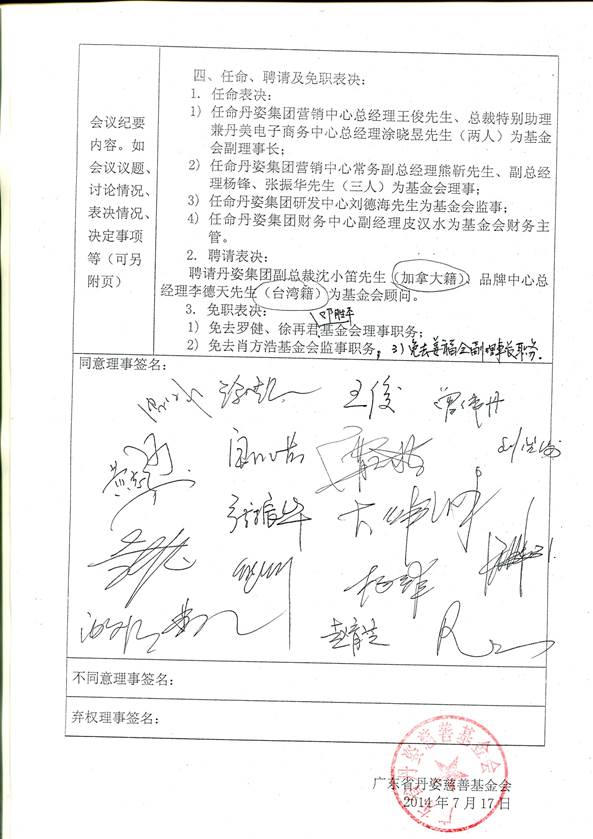 四、任命、聘请及免职表决：
1. 任命表决：
1）任命丹姿集团营销中心总经理王俊先生、总裁特别助理
兼丹美电子商务中心总经理涂晓昱先生（两人）为基金
会副理事长；
2）任命丹姿集团营销中心常务副总经理熊靳先生、副总经
理杨锋、张振华先生（三人）为基金会理事；
3）任命丹姿集团研发中心刘德海先生为基金会监事；
4）任命丹姿集团财务中心副经理皮汉水为基金会财务主
管。
2. 聘请表决：
聘请丹姿集团副总裁沈小笛先生（加拿大籍）、品牌中心总
经理李德天先生（台湾籍）为基金会顾问。
3. 免职表决：
邓胜平
1）免去罗健、徐再君基金会理事职务；
2）免去肖方浩基金会监事职务；3）免去姜福全副理事长职务.
会议纪要
内容。如
会议议题、
讨论情况、
表决情况、
决定事项
等（可另
附页）
同意理事签名：
王俊
曾伟丹
张振华
杨锋
赵青兰
不同意理事签名：
弃权理事签名：
广东省丹姿慈善基金会
广东省丹姿慈善基金会
2014年7月17日